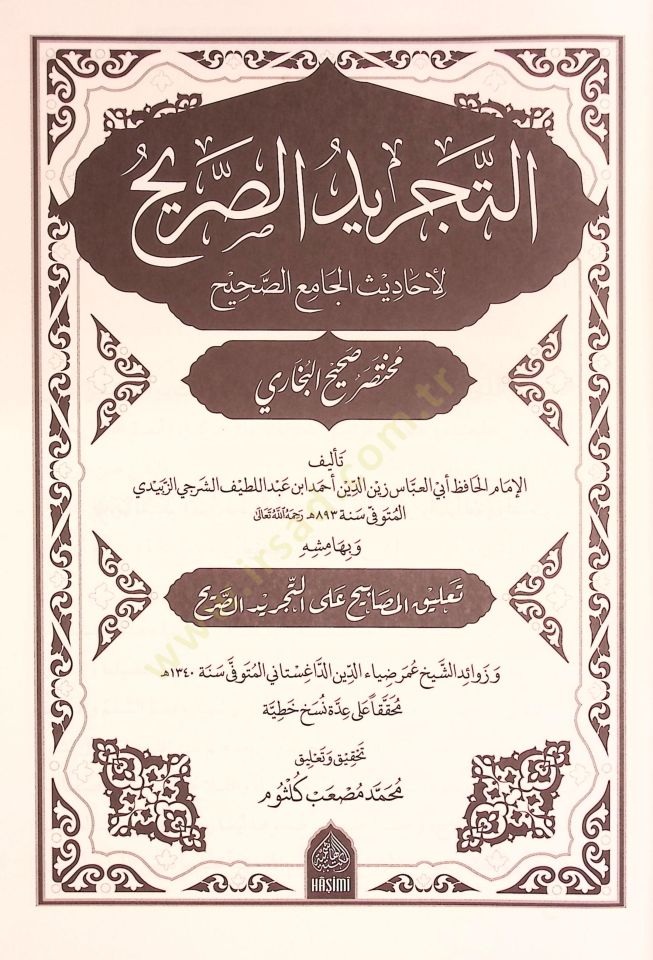 التَّجريدُ الصَّريحُ
لِأَحَادِيْثِ الجَامِعِ الصَّحِيْحِ
مُخْتَصَرُ صَحِيْحِ البُخَارِي
تَأليف
الإمَام الحَافِظ أبي العبَّاس زين الدّين أحمَد ابن عَبد اللطيف الشرجي الزَّبيدي
المتوفى سَنة ٨٩٣هـ رَحِمَهُ اللَّهُ تَعَالَىٰ
وَبِهَامِشِهِ
تَعليق المصَابيح عَلى التَّجريد الصَّريح
وَزوائد الشَّيخ عُمَر ضيَاء الدّين الدَّاغِستاني المتوفَّى سَنَة ١٣٤٠هـ
مُحَقَّقاً عَلى عِدَّة نُسَخ خَطيَّة
تحقيق وَتعليق
مُحَمَّد مُصْعَب كُلثُوم
HAŞİMİ
www.irsad.com.tr